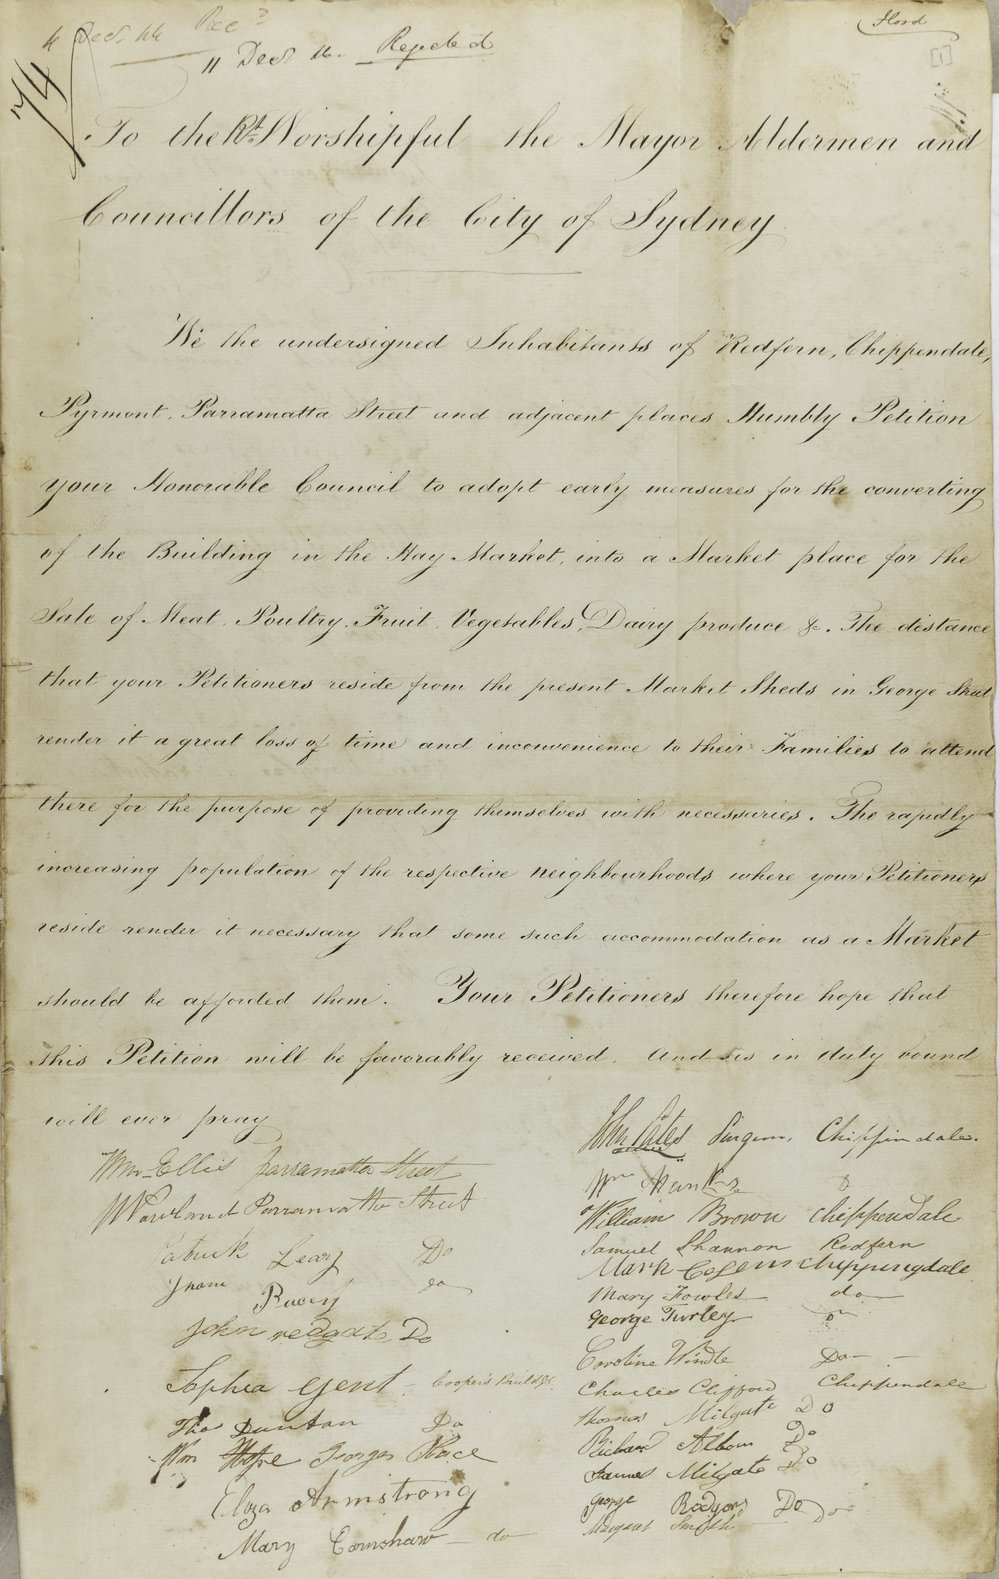 4 Dec. 44 Rec^d
11 Dec^r 44. Rejected
Hord
[1]
74
To the R^t. Worshipful the Mayor Aldermen and
Councillors of the City of Sydney
We the undersigned Inhabitants of Redfern, Chippendale,
Pyrmont, Parramatta Street and adjacent places Humbly Petition
your Honorable Council to adopt early measures for the converting
of the Building in the Hay Market, into a Market place for the
Sale of Meat, Poultry, Fruit, Vegetables, Dairy produce &c. The distance
that your Petitioners reside from the present Market Sheds in George Street
render it a great loss of time and inconvenience to their Families to attend
there for the purpose of providing themselves with necessaries. The rapidly
increasing population of the respective neighbourhoods where your Petitioners
reside render it necessary that some such accommodation as a Market
should be afforded them. Your Petitioners therefore hope that
this Petition will be favorably received. And as in duty bound
will ever pray
Wm. Ellis Parramatta Street
W Rowland Parramatta Street
Patrick Leary Do
do
John redgate Do
Sophia Gent. Cooper's Build^gs.
Thos Dunton Do
Wm Hope George Place
Eliza Armstrong
Mary Cornshaw do
Surgeon, Chippendale.
Wm
William Brown Chippendale
Samuel Shannon Redfern
Mark Cogens Chippingdale
Mary Fowles do
George Turley
Caroline Windle Do
Charles Clifford Chippendale
Thomas Milgate DO
Richard Albom Do
James Milgate Do
George Rodgers Do
Margaret Smith Do